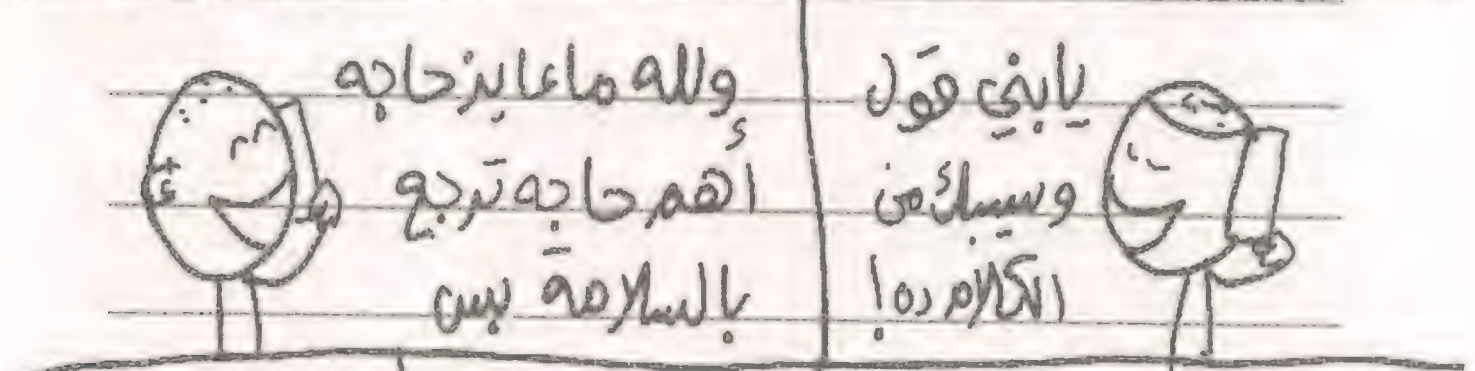 يابني قول
وسيبك من
الكلام ده!
ولله ما عايز حاجه
أهم حاجه ترجع
بالسلامة بس